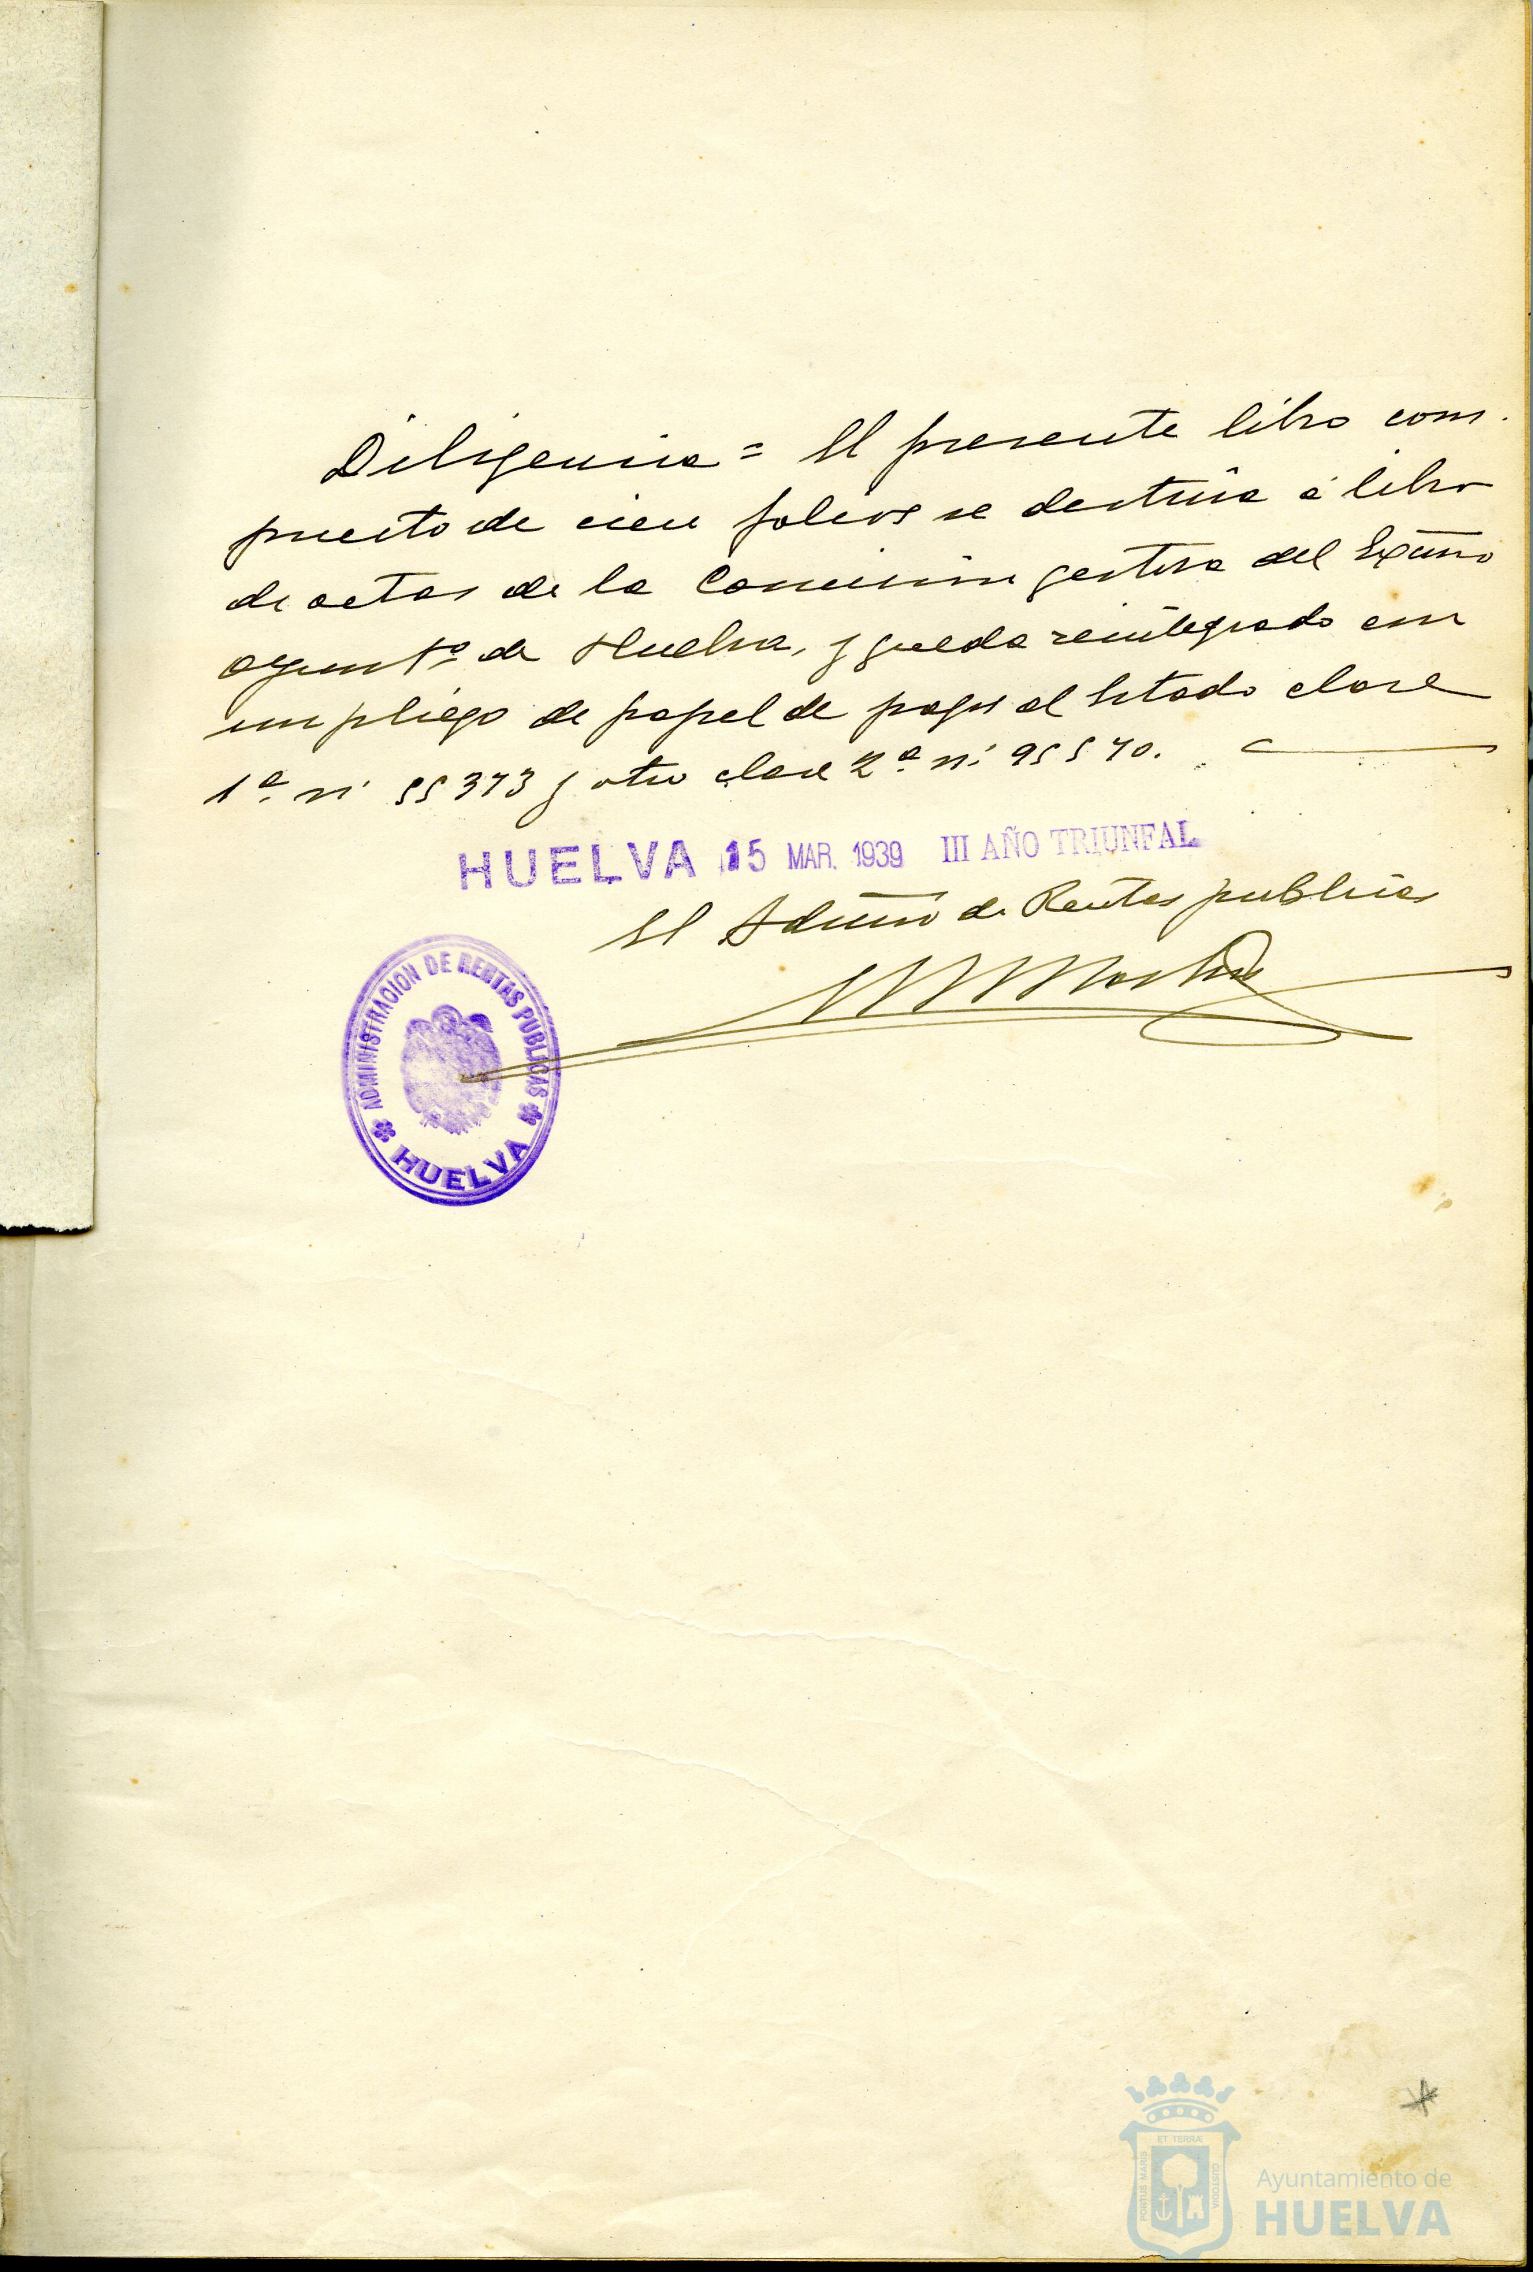 Diligencia = El presente libro com-
puesto de cien folios se destina á libro
de actas de la Comisión gestora del Exmo
Ayuntº de Huelva, y queda reintegrado con
un pliego de papel de pagos al Estado clase
1ª nº 55373 y otro clase 2ª nº 95570.
HUELVA 15 MAR. 1939 III AÑO TRIUNFAL
El Admor de Rentas publicas
ADMINISTRACION DE RENTAS PUBLICAS
HUELVA
ET TERRÆ
PORTUS MARIS
CUSTODIA
Ayuntamiento de
HUELVA